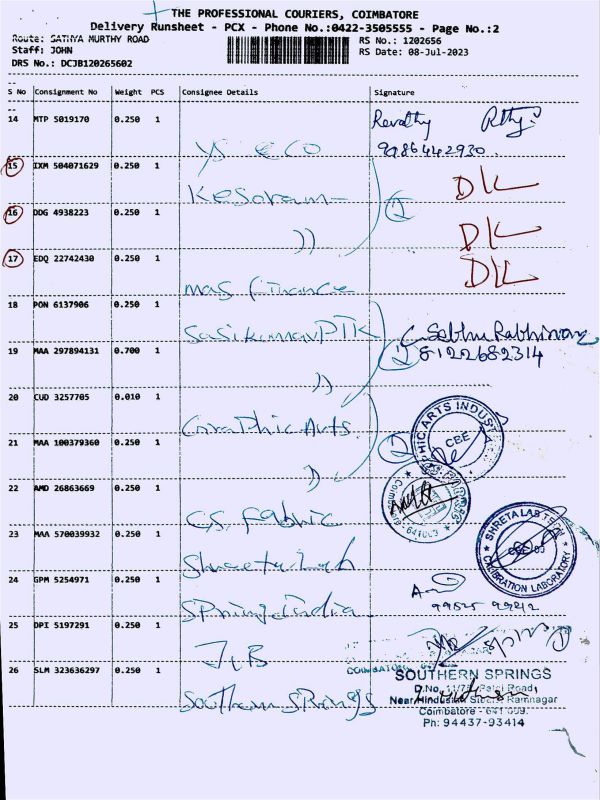 THE PROFESSIONAL COURIERS, COIMBATORE
Delivery Runsheet - PCX - Phone No.:0422-3505555 - Page No.:2
Route: SATHYA MURTHY ROAD
RS No.: 1202656
Staff: JOHN
RS Date: 08-Jul-2023
DRS No.: DCJB120265602
S No Consignment No Weight PCS Consignee Details Signature
14 MTP 5019170 0.250 1 Revathy
ys eco 9986442930.
15 IXM 504071629 0.250 1
Kesoram
16 DDG 4938223 0.250 1
))
17 EDQ 22742430 0.250 1
mas finance
18 PON 6137906 0.250 1
Sasikumar PTK
19 MAA 297894131 0.700 1 8122682314
))
20 CUD 3257705 0.010 1
Graphic Arts
21 MAA 100379360 0.250 1
22 AMD 26863669 0.250 1
CS. Fabric
23 MAA 570039932 0.250 1
Shreeta Lab
24 GPM 5254971 0.250 1
Spring India
25 DPI 5197291 0.250 1
26 SLM 323636297 0.250 1
Southern Springs
PHIC ARTS INDUST
CBE
SHRETA LAB TECH
CALIBRATION LABORATORY
SOUTHERN SPRINGS
Near Hindusthan Ramnagar
Coimbatore - 641 009.
Ph: 94437-93414